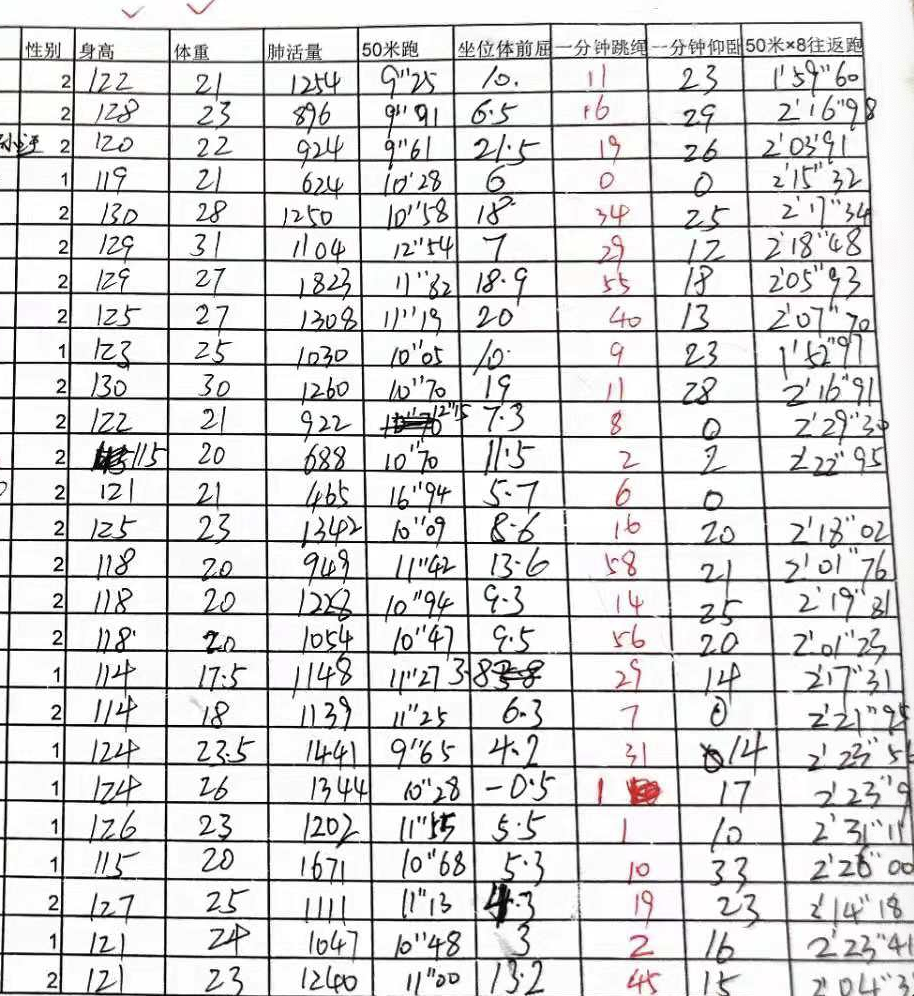 性别 身高 体重 肺活量 50米跑 坐位体前屈 一分钟跳绳 一分钟仰卧 50米×8往返跑
2 122 21 1254 9"25 10. 11 23 1'59"60
2 128 23 896 9"91 6.5 16 29 2'16"98
2 120 22 924 9"61 21.5 19 26 2'03"91
1 119 21 624 10"28 6 0 0 2'15"32
2 130 28 1250 10"58 18 34 25 2'17"34
2 129 31 1104 12"54 7 29 12 2'18"48
2 129 27 1823 11"82 18.9 55 18 2'05"93
2 125 27 1308 11"19 20 40 13 2'07"70
1 123 25 1030 10"05 10. 9 23 1'52"97
2 130 30 1260 10"70 19 11 28 2'16"91
2 122 21 922 12"15 7.3 8 0 2'29"30
2 115 20 688 10"70 11.5 2 2 2'22"95
2 121 21 465 16"94 5.7 6 0
2 125 23 1342 10"09 8.6 16 20 2'18"02
2 118 20 949 11"42 13.6 58 21 2'01"76
2 118 20 1228 10"94 9.3 14 25 2'19"81
2 118 20 1054 10"47 9.5 56 20 2'01"23
1 114 17.5 1148 11"27 3.8 29 14 2'17"31
2 114 18 1139 11"25 6.3 7 0 2'21"95
1 124 23.5 1441 9"65 4.2 31 14 2'23"5
1 124 26 1344 10"28 -0.5 1 17 2'23"9
1 126 23 1202 11"55 5.5 1 10 2'31"11
1 115 20 1671 10"68 5.3 10 33 2'26"00
2 127 25 1111 11"13 4.3 19 23 2'14"18
1 121 24 1047 10"48 3 2 16 2'23"41
2 121 23 1240 11"00 13.2 45 15 2'04"3